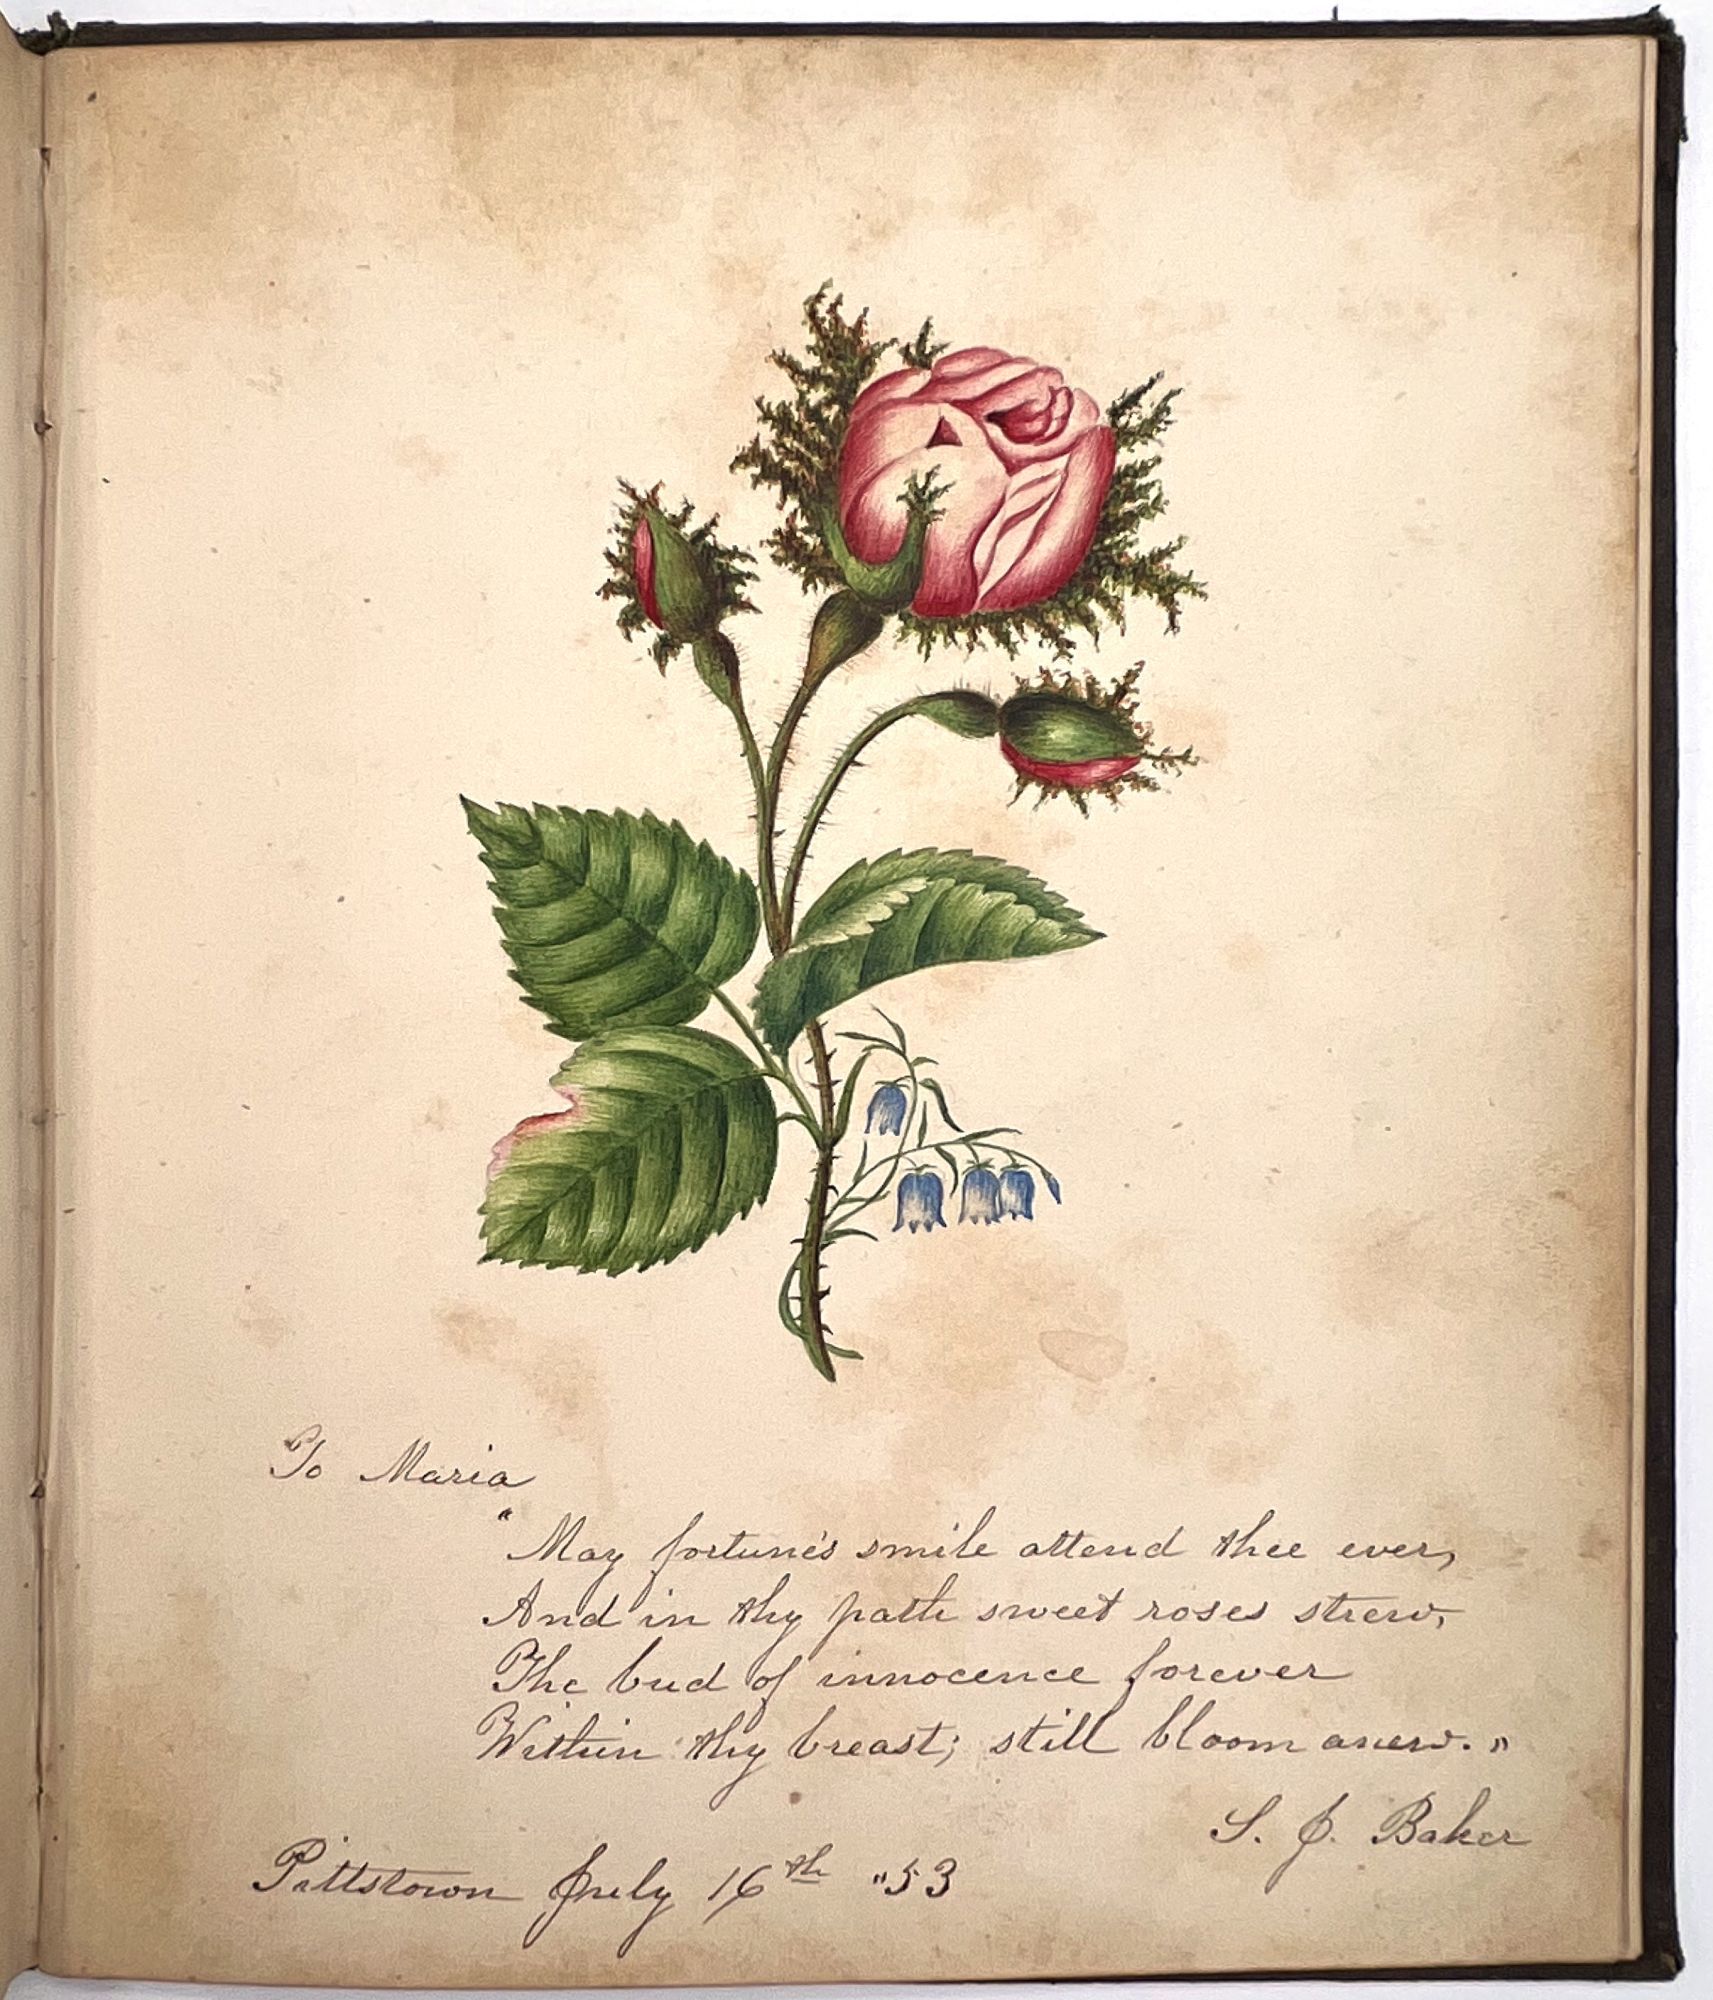 To Maria
"May fortune's smile attend thee ever,
And in thy path sweet roses strew,
The bud of innocence forever
Within thy breast; still bloom anew."
S. J. Baker
Pittstown July 16th "53